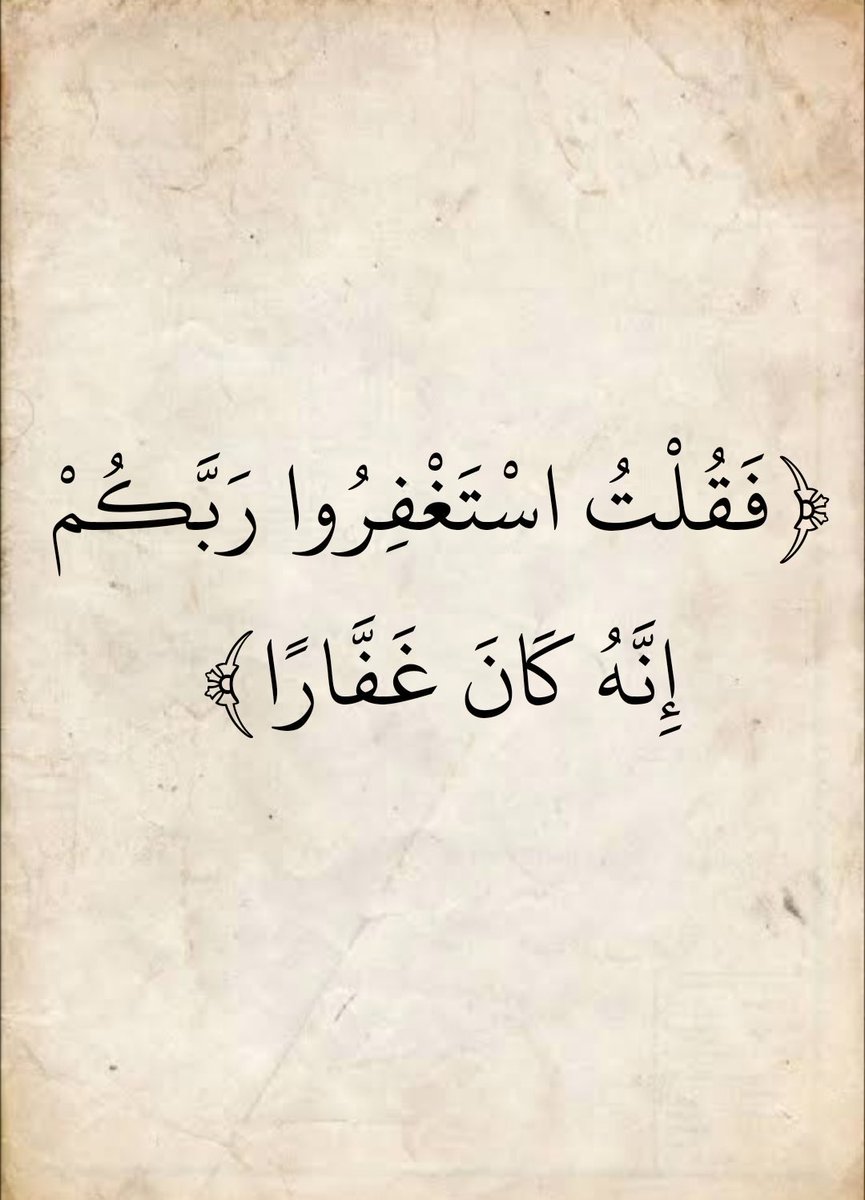 ﴿فَقُلْتُ اسْتَغْفِرُوا رَبَّكُمْ
إِنَّهُ كَانَ غَفَّارًا﴾